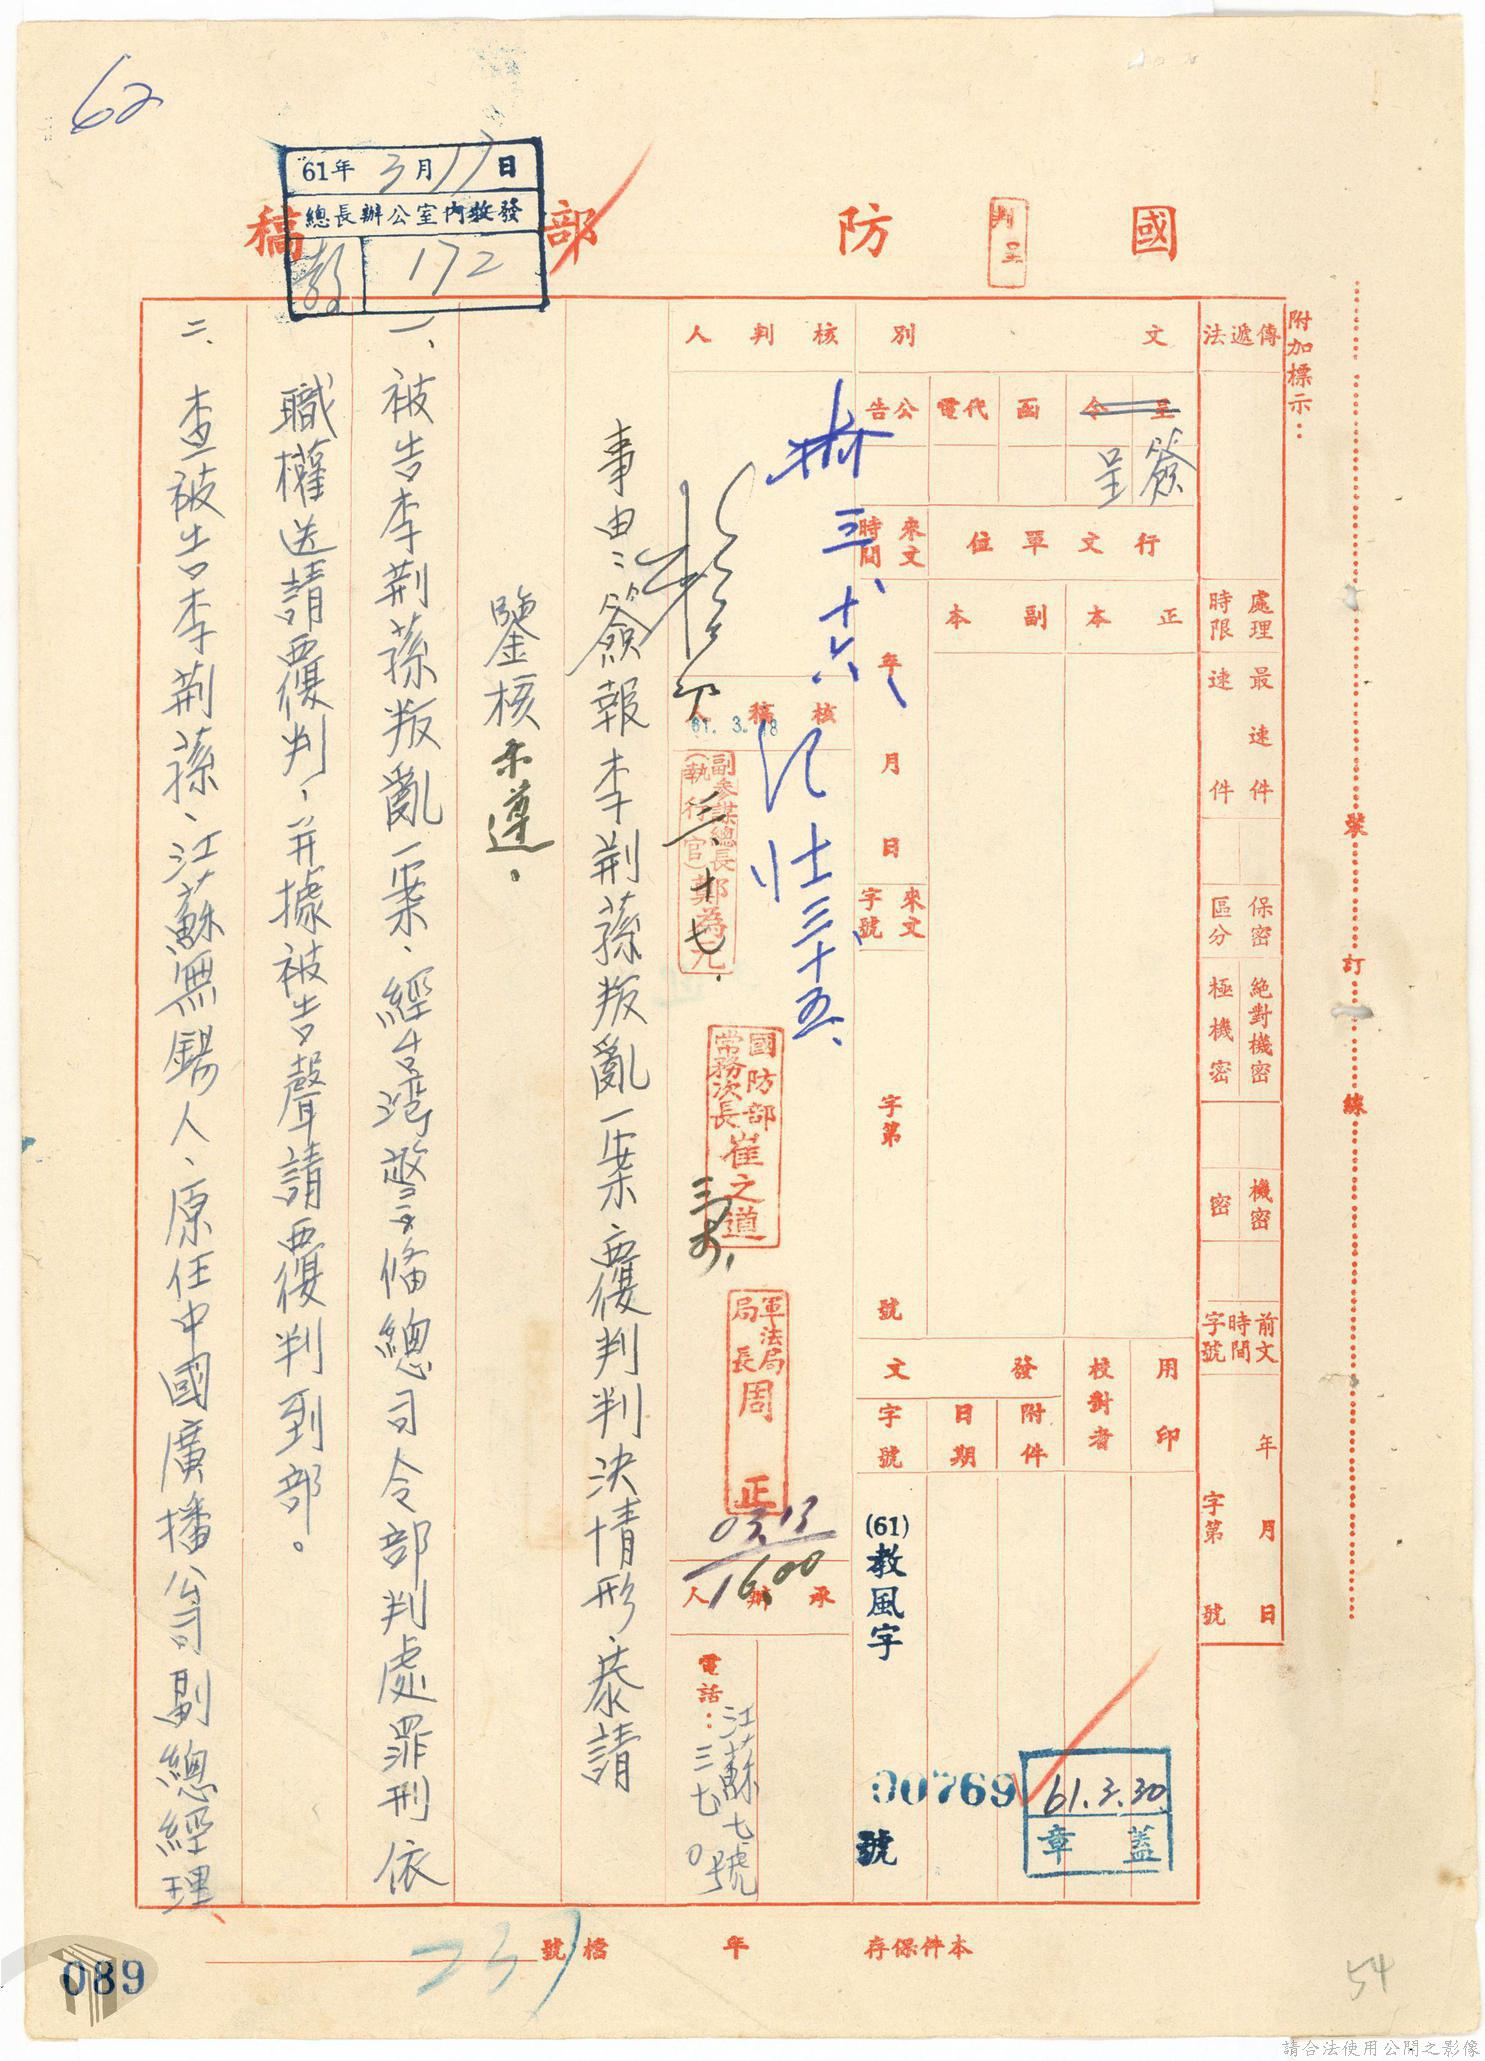 62
61年3月17日
總長辦公室內教發
教 172
國防部稿
判呈
附加標示：
傳遞法
處理時限
最速件
速件
保密區分
絕對機密
極機密
機密
密
前文時間字號
年月日
字第號
文別
呈
令
函
代電
公告
簽呈
行文單位
正本
副本
來文時間
年月日
來文字號
字第號
用印
校對者
發文
附件
日期
字號
(61)教風字
00769
號
61.3.30
蓋章
核判人
三、十六、
三十五、
核稿人
61.3.18
副參謀總長(執行官)鄭為元
三、十七.
國防部常務次長崔之道
軍法局局長周正
03.13
1600
承辦人
電話：三七七0
江蘇七號
事由：簽報李荆蓀叛亂一案覆判判決情形恭請
鑒核示遵。
一、被告李荆蓀叛亂一案、經台灣警備總司令部判處罪刑依
職權送請覆判、并據被告聲請覆判到部。
二、查被告李荆蓀、江蘇無錫人、原任中國廣播公司副總經理、
裝訂線
本件保存 年 檔號
237
089
54
請合法使用公開之影像